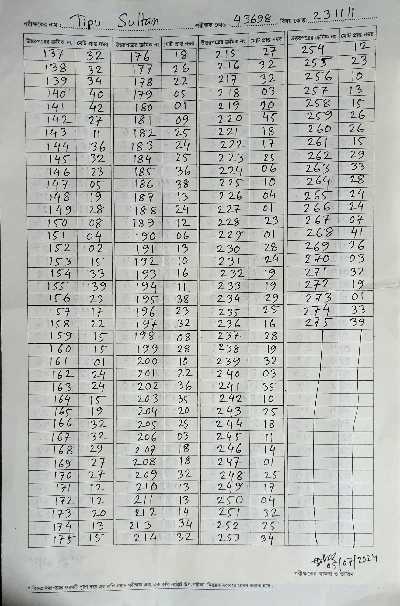 পরীক্ষকের নাম : Tipu Sultan পরীক্ষক নেং: 43698 বিষয় কোড: 231111
137 32 176 18 215 27 254 12
138 32 177 26 216 32 255 23
139 34 178 22 217 32 256 10
140 40 179 05 218 03 257 13
141 42 180 01 219 20 258 15
142 27 181 09 220 45 259 26
143 11 182 25 221 18 260 26
144 36 183 24 222 17 261 15
145 32 184 25 223 25 262 29
146 23 185 36 224 06 263 33
147 05 186 38 225 10 264 28
148 19 187 13 226 04 265 24
149 28 188 24 227 01 266 24
150 08 189 12 228 23 267 07
151 04 190 06 229 01 268 41
152 02 191 13 230 28 269 26
153 15 192 10 231 24 270 03
154 33 193 16 232 19 271 32
155 39 194 11 233 19 272 19
156 23 195 38 234 29 273 01
157 17 196 23 235 25 274 33
158 22 197 32 236 16 275 39
159 15 198 08 237 28
160 15 199 28 238 19
161 01 200 18 239 32
162 24 201 22 240 03
163 24 202 36 241 35
164 15 203 35 242 10
165 19 204 20 243 25
166 32 205 25 244 18
167 32 206 03 245 11
168 29 207 18 246 14
169 27 208 18 247 01
170 27 209 32 248 25
171 12 210 13 249 17
172 12 211 13 250 04
173 20 212 14 251 32
174 13 213 34 252 25
175 15 214 32 253 34
05/07/2024